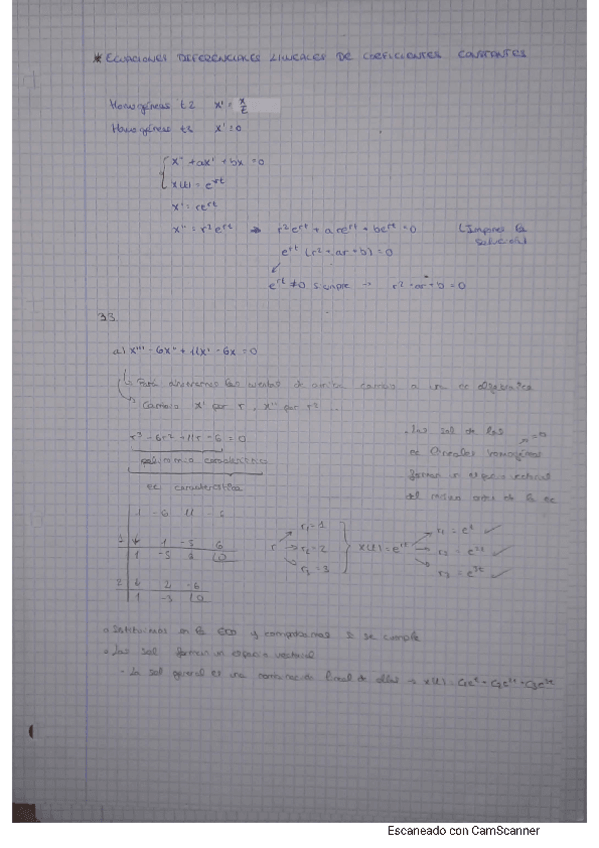 * ECUACIONES DIFERENCIALES LINEALES DE COEFICIENTES CONSTANTES
Homogéneas t2 x' = x/t
Homogéneas t1 x' = 0
x'' + ax' + bx = 0
x(t) = e^rt
x' = re^rt
x'' = r²e^rt → r²e^rt + a re^rt + be^rt = 0 (Impones la solución)
e^rt (r² + ar + b) = 0
e^rt ≠ 0 siempre → r² + ar + b = 0
33.
a) x''' - 6x'' + 11x' - 6x = 0
Para ahorrarnos las cuentas de arriba cambio a una ec algebraica
Cambio x' por r, x'' por r² ...
r³ - 6r² + 11r - 6 = 0
polinomio característico
ec característica
. Las sol de las
ec lineales homogéneas = 0
forman un espacio vectorial
del mismo orden de la ec
1 -6 11 -6
1 ↓ 1 -5 6
1 -5 6 0
2 ↓ 2 -6
1 -3 0
r → r₁ = 1
r₂ = 2
r₃ = 3
x(t) = e^rt
r₁ = e^t ✓
r₂ = e^2t ✓
r₃ = e^3t ✓
Sustituimos en la EDO y comprobamos si se cumple
Las sol forman un espacio vectorial
- La sol general es una combinación lineal de ellas → x(t) = C₁e^t + C₂e^2t + C₃e^3t
Escaneado con CamScanner